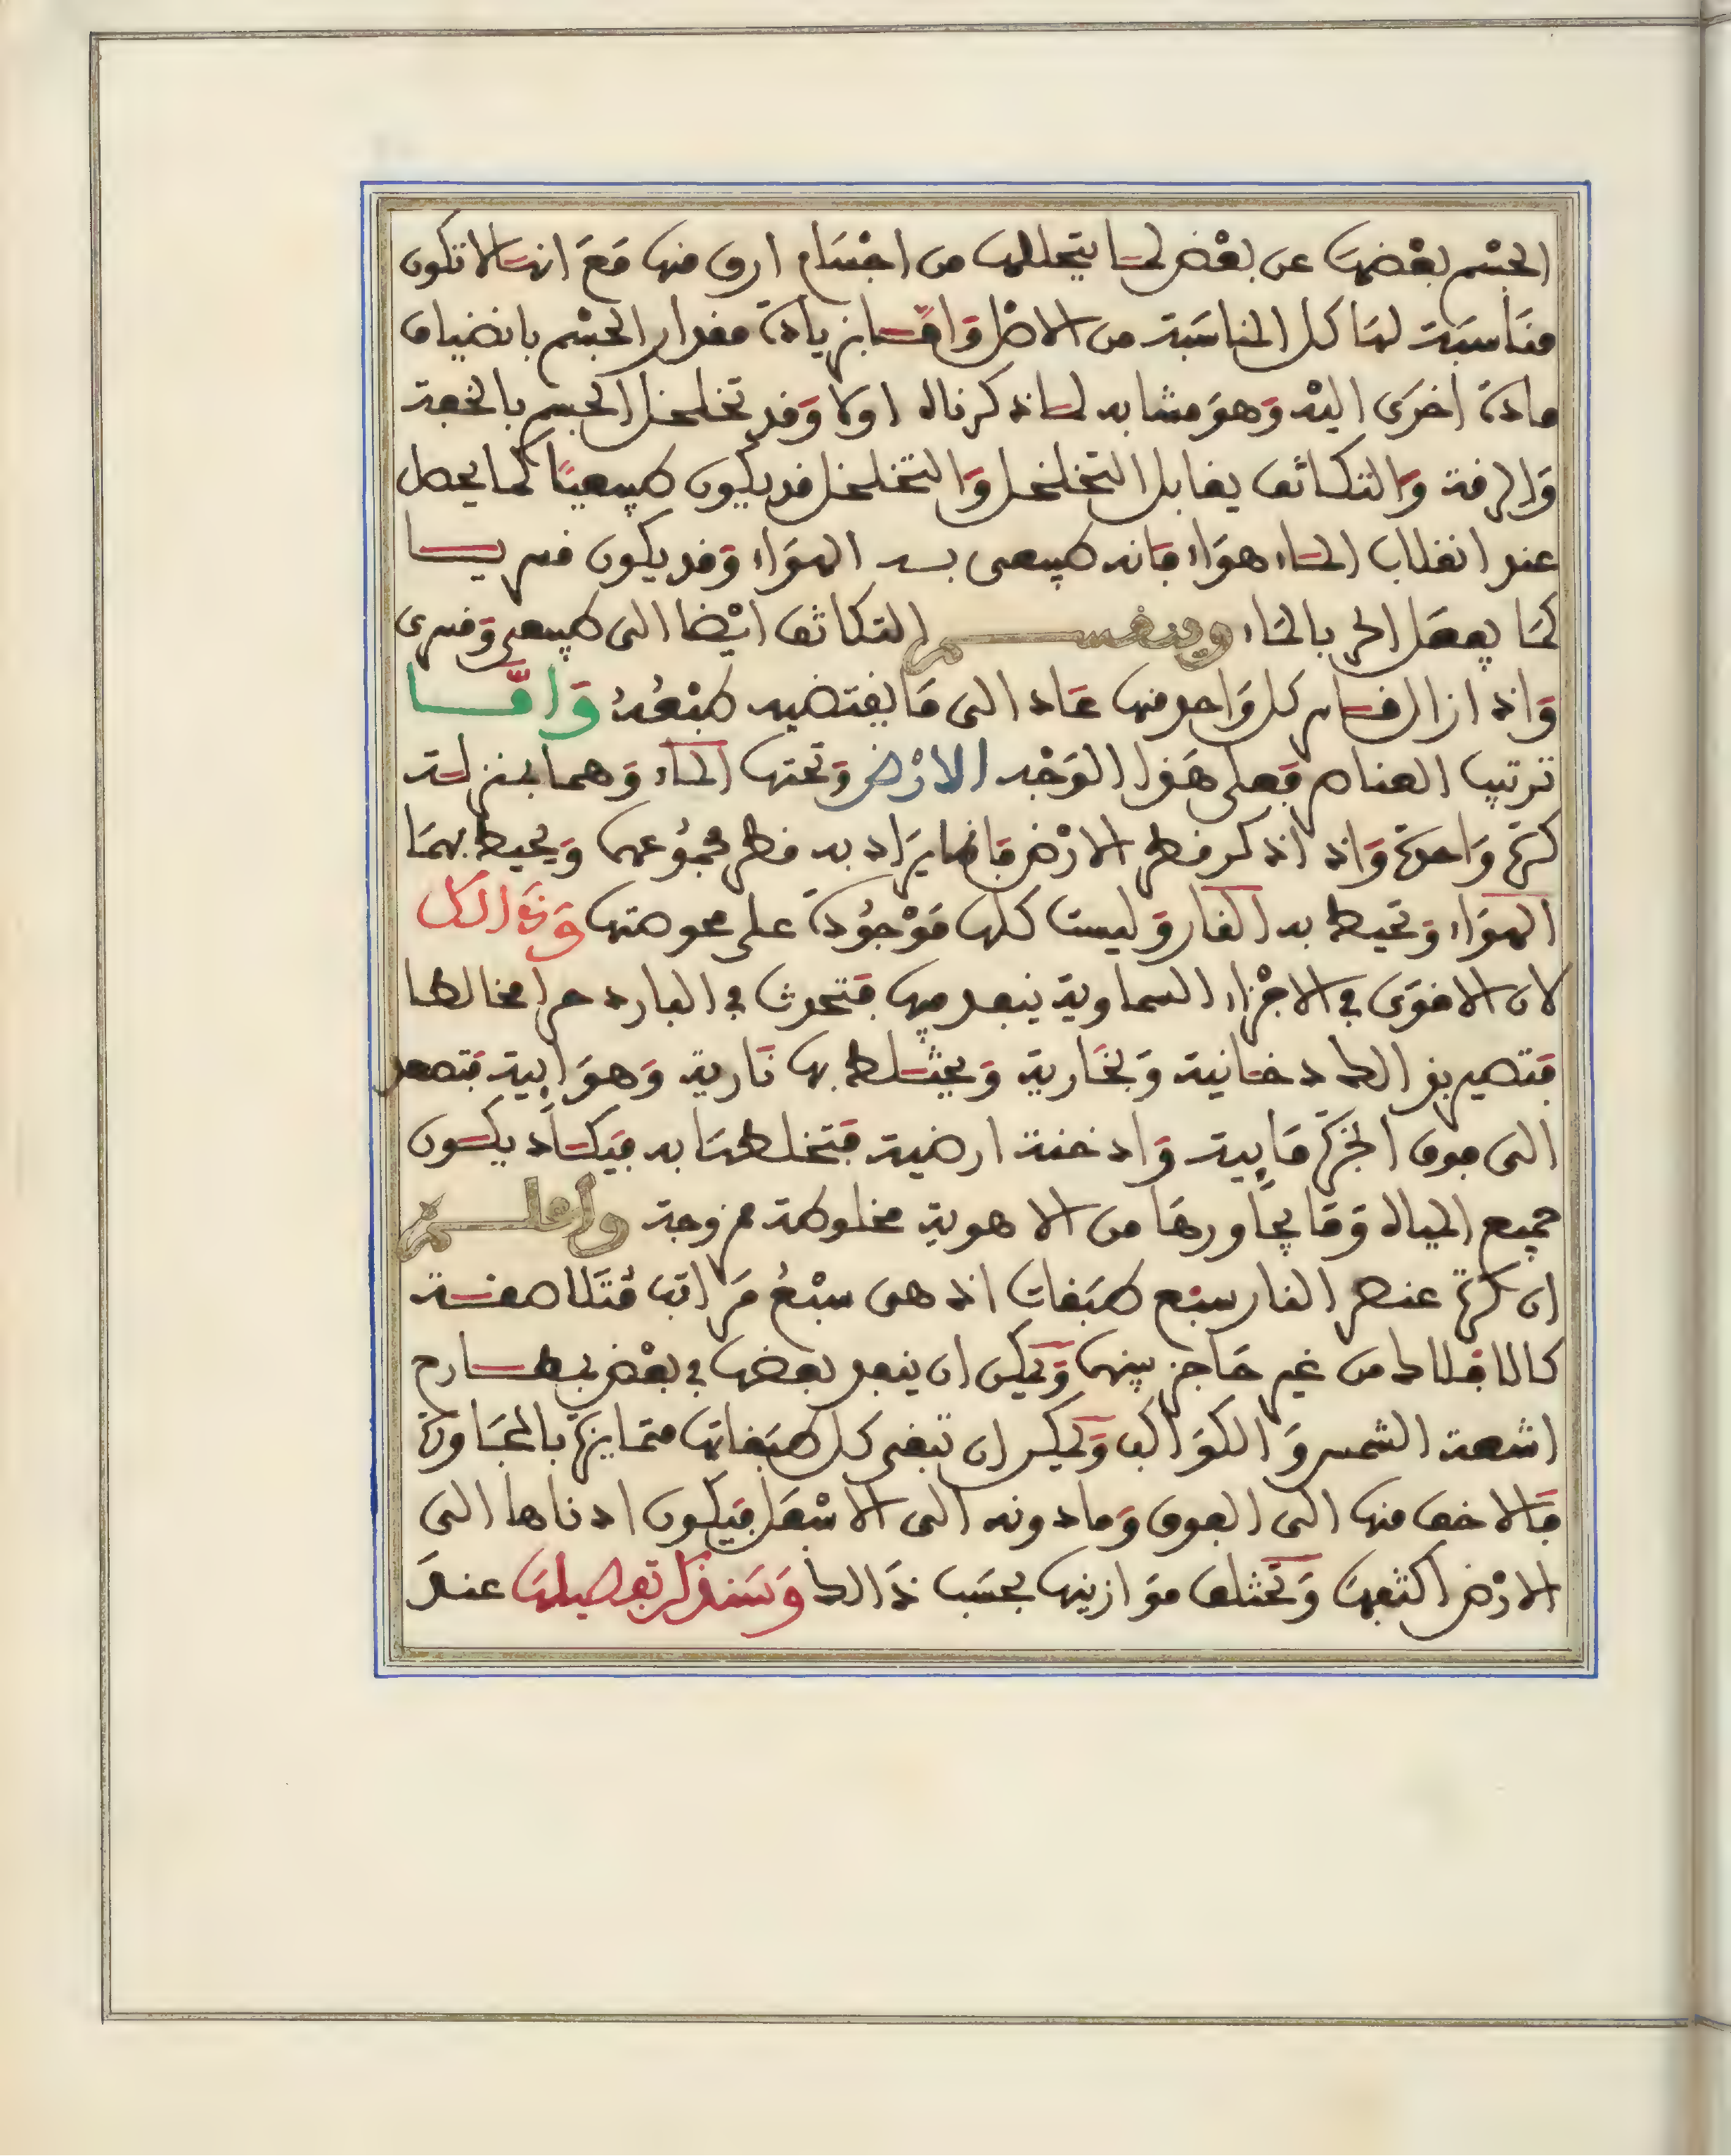 الجسْم بعْضهَا عن بعْض لمَا يتخللها من اجْسَام ارق منها مَعَ انهَا لا تكون
منَاسبَة لهَا كل المناسَبة من الاصْل وَامّا بزيادة مقدار الجسْم بانضياف
مادة اخرَى اليْه وَهوَ مشابه لما ذكرناه اولا وَقد تخلخل الجسم بالخفة
وَالرقة وَالتكاثف يقابل التخلخل وَالتخلخل قد يكون طبيعيًا كما يحصل
عند انقلاب المَاء هوَاء فانه طبيعى به الهوَاء وَقد يكون قسريا
كمَا يفعَل الحر بالمَاء وينقسم التكاثف ايْضا الى طبيعى وَقسرى
وَاذا زال القسَام كل وَاحد منها عَاد الى مَا يقتضيه طبْعُهُ وَامَّا
ترتيب العناصر فعلى هَذا الوَجْه الارْض وَتحتها المَاء وَهما بمنزلة
كرة وَاحدة وَاذا ذكر قطر الارْض فانما يرَاد به قطر مجموُعهما وَيحيط بهمَا
الهوَاء وَتحيط به النار وَليست كلها مَوْجوُدة على محوضتها وَذَالك
لان الاقوَى في الاجْزاء السماوية ينفد فيها فتحدث في البارد حرا مخالطا
فتصير بذالك دخانية وَبخَارية وَيختلط بها نَارية وَهوَايية فتصعد
الى فوق ابخرة مَايية وَادخنة ارضية فتخلطهَا به فيَكاد يكون
جميع المياه وَمَا يجَاورهَا من الاهوية مخلوطة ممزوجة وأعلم
ان كرة عنصر النار سبْع طبَقات اذ هى سبْعُ مرَاتب مُتَلاصقة
كالافلاك من غير حَاجز بينها وَيمكن ان ينفد بعضها في بعْض بمطارح
اشعة الشمس وَالكوَاكب وَيمكن ان تبقى كل طبَقاتها متمايزة بالمجَاورة
فالاخف منها الى الفوق وَمادونه الى الاسْفَل فيَكون ادناها الى
الارْض اكثفهَا وَتختلف موَازينها بحسَب ذَالك وَسَنذكر تفصيلهَا عندَ